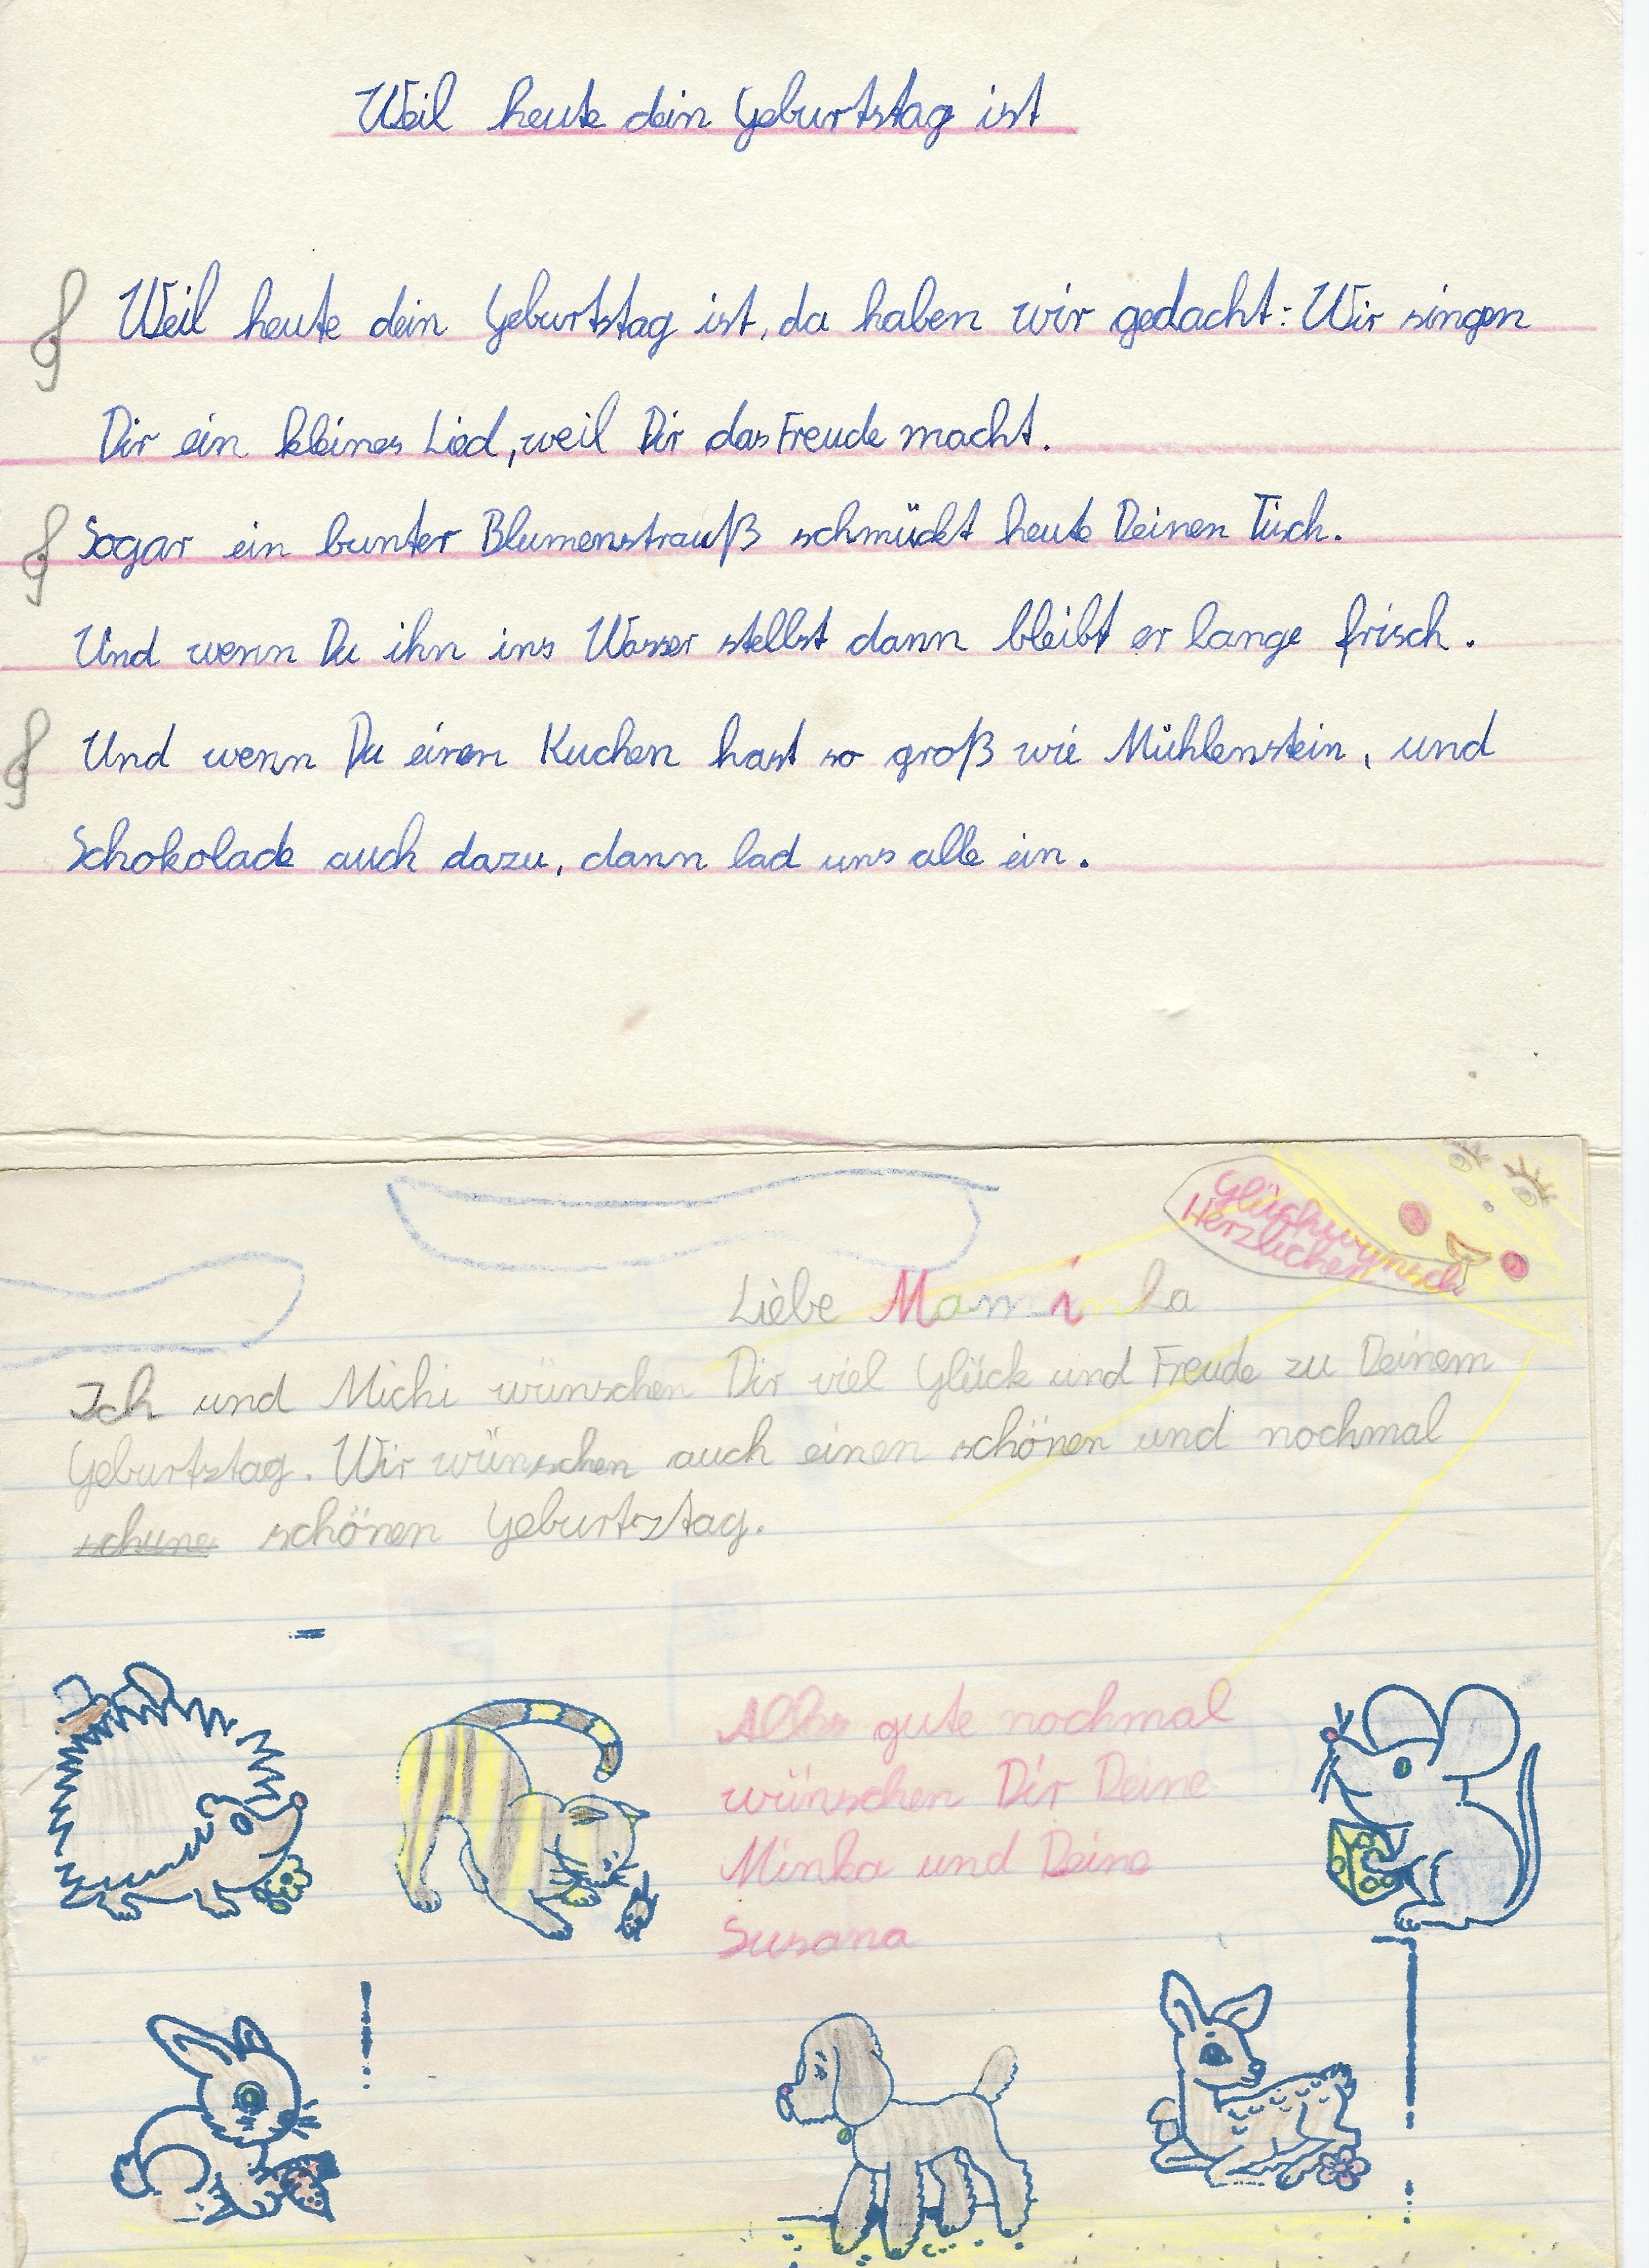 Weil heute dein Geburtstag ist
Weil heute dein Geburtstag ist, da haben wir gedacht: Wir singen
Dir ein kleines Lied, weil Dir das Freude macht.
Sogar ein bunter Blumenstrauß schmückt heute Deinen Tisch.
Und wenn Du ihn ins Wasser stellst dann bleibt er lange frisch.
Und wenn Du einen Kuchen hast so groß wie Mühlenstein, und
Schokolade auch dazu, dann lad uns alle ein.
Glückwunsch
Herzlichen
Liebe Maminka
Ich und Michi wünschen Dir viel Glück und Freude zu Deinem
Geburtztag. Wir wünschen auch einen schönen und nochmal
schune schönen Geburtztag.
Alles gute nochmal
wünschen Dir Deine
Minka und Deine
Susana